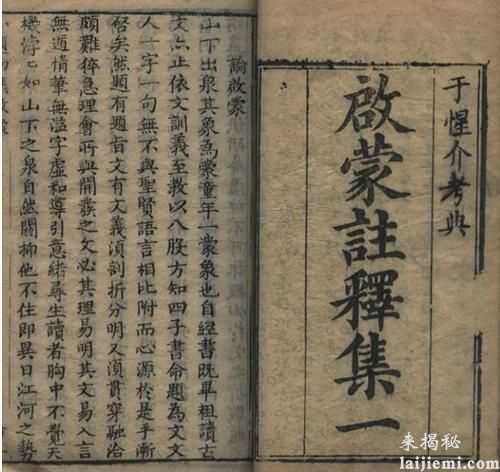 于惺介考典
啟蒙註釋集一
論啟蒙
山下出泉其象為蒙童年一蒙象也自經書既畢粗讀古
文亦止依文訓義至教以八股方知四子書命題為文文
人一字一句無不與聖賢語言相比附而心源於是乎漸
啓矣然題有題旨文有文義須剖折分明又須貫穿融洽
頗難猝急理會所與開發之文必其理易明其文易入言
無遁情筆無滥字虛和導引意緒尋生讀者胸中不覺天
機浡〻如山下之泉自然關抑他不住即異日江河之勢
来揭秘
laijiemi.com